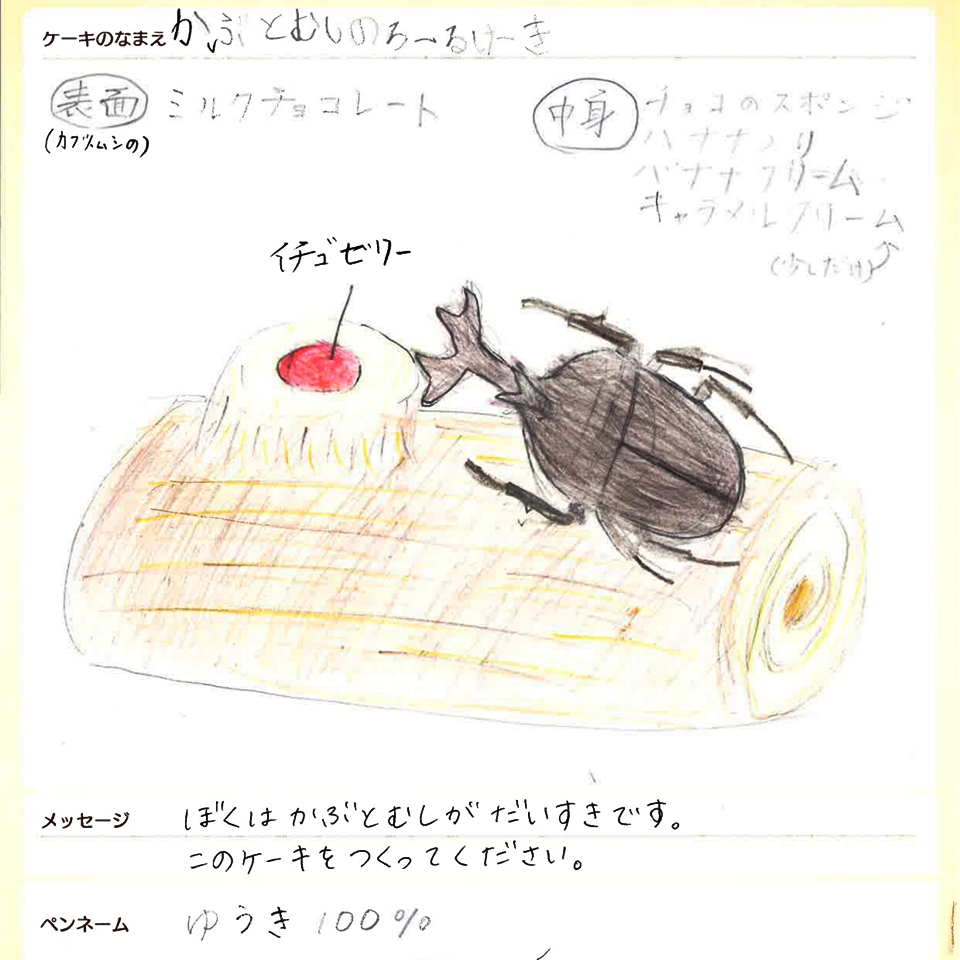 ケーキのなまえ かぶとむしのろーるけーき
表面 ミルクチョコレート
(カブトムシの)
中身 チョコのスポンジ
バナナクリーム
キャラメルクリーム
(少しだけ)
イチゴゼリー
メッセージ ぼくはかぶとむしがだいすきです。
このケーキをつくってください。
ペンネーム ゆうき100%